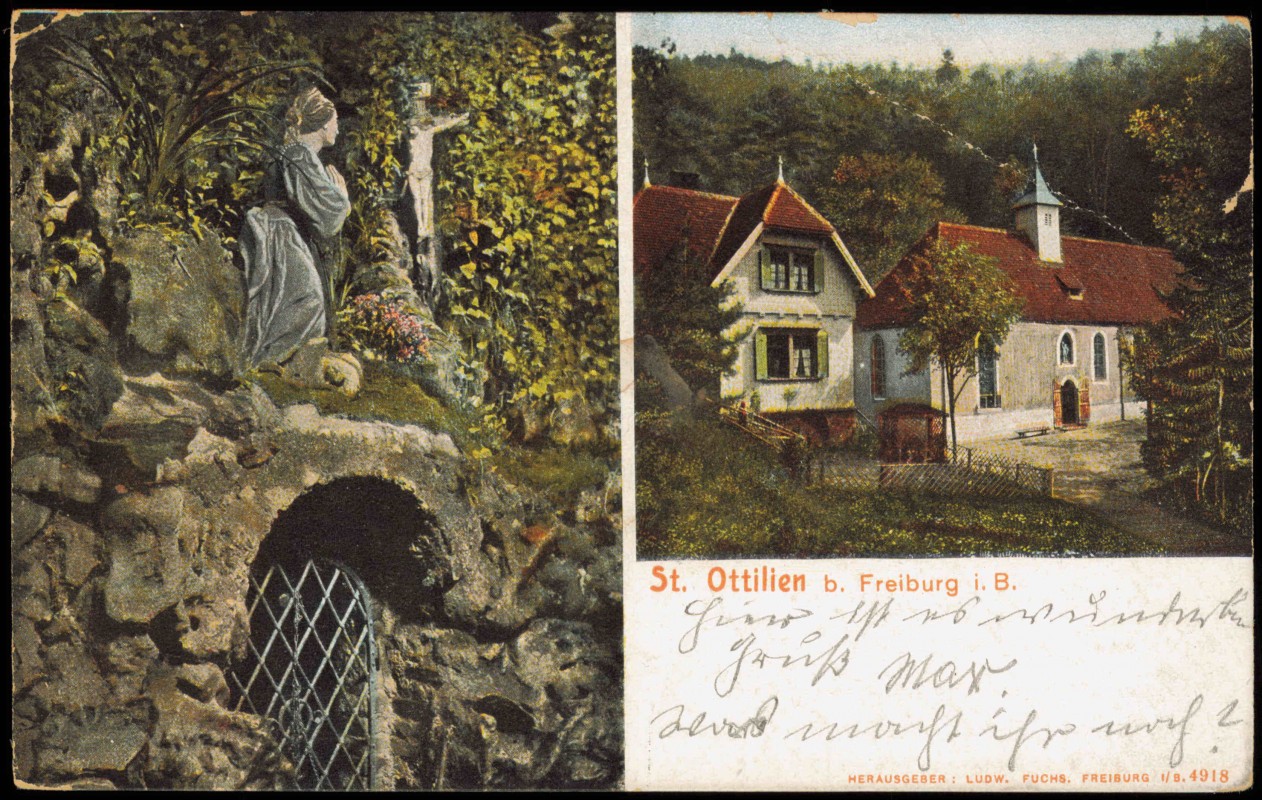 St. Ottilien b. Freiburg i. B.
Hier ist es wunderbar
Gruß Max.
Was macht ihr noch?
HERAUSGEBER: LUDW. FUCHS. FREIBURG I/B. 4918